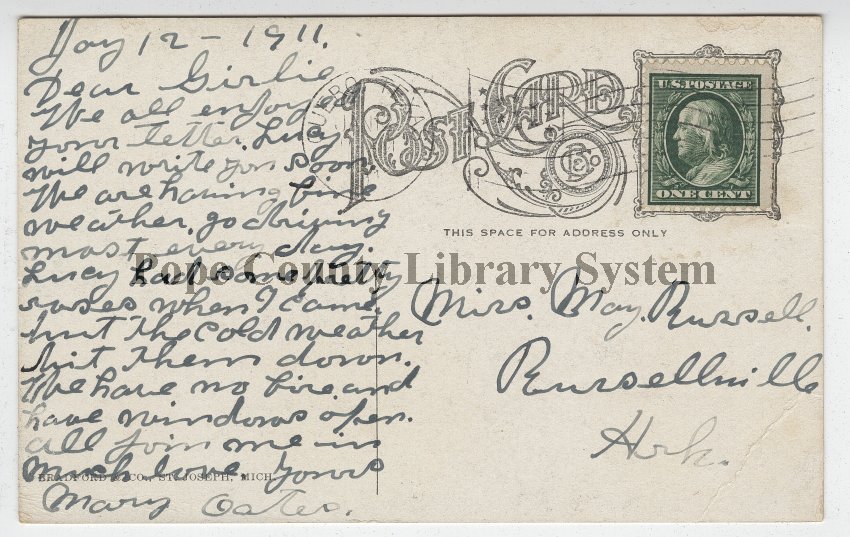 Jany 12 - 1911.
Dear Girlie
We all enjoyed
your letter. Lucy
will write you soon
We are having fine
weather, go driving
most every day.
Lucy had some pretty
roses when I came
but the cold weather
hit them down.
We have no fire and
have windows open.
All join me in
much love. Yours
Mary Oates.
BRADFORD & CO., ST. JOSEPH, MICH.
CUERO TEXAS
POST CARD
B & Co
U.S. POSTAGE
ONE CENT
THIS SPACE FOR ADDRESS ONLY
Pope County Library System
Miss. May. Russell.
Russellville
Ark.